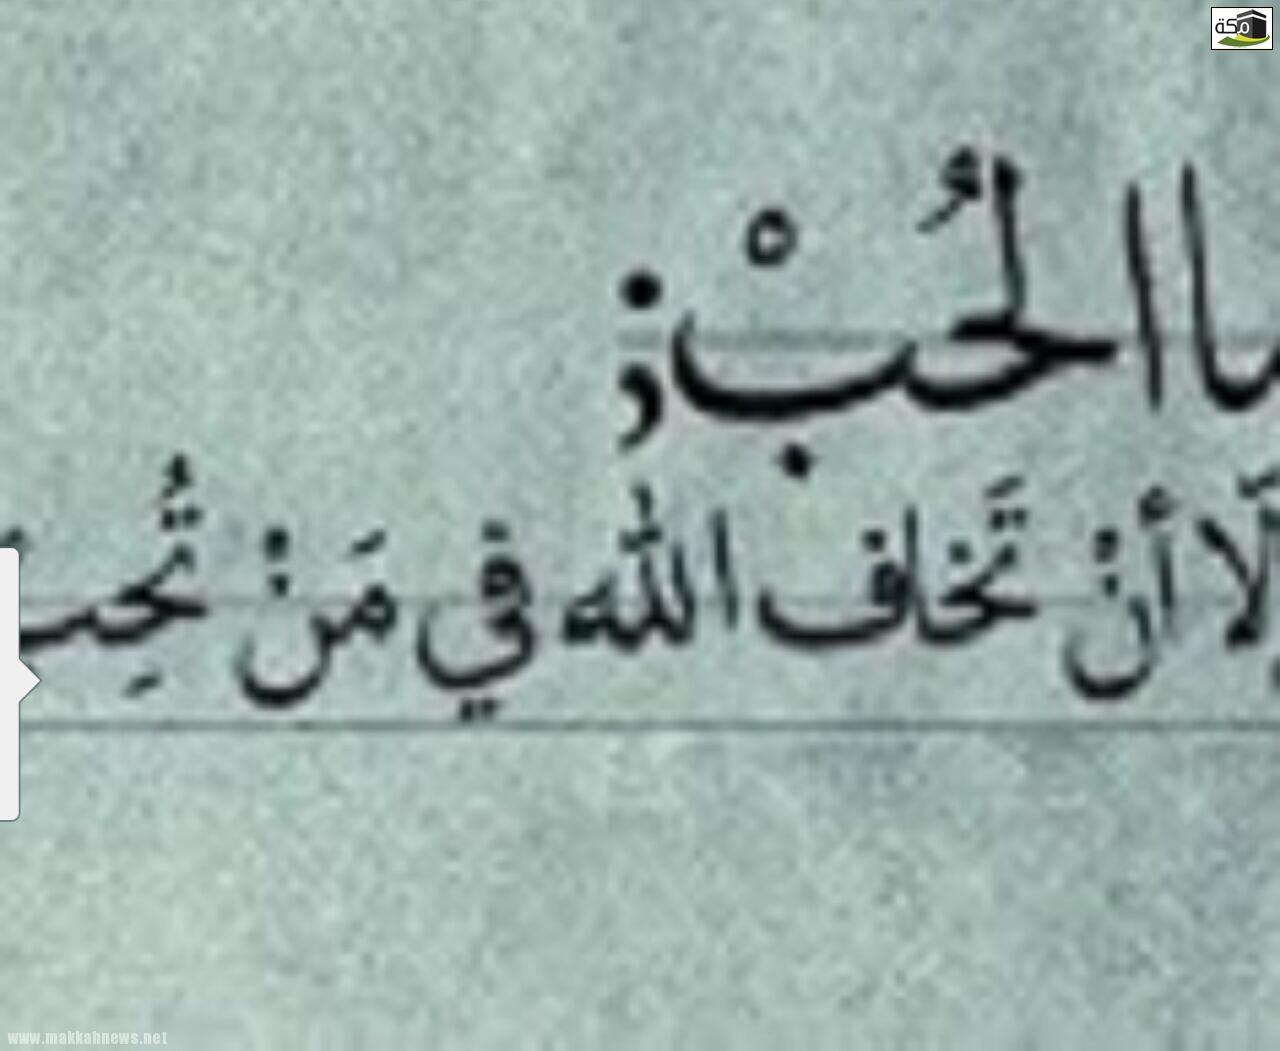 مكة
ما الحُبْ؟
إلّا أنْ تَخاف الله في مَنْ تُحِب
www.makkahnews.net